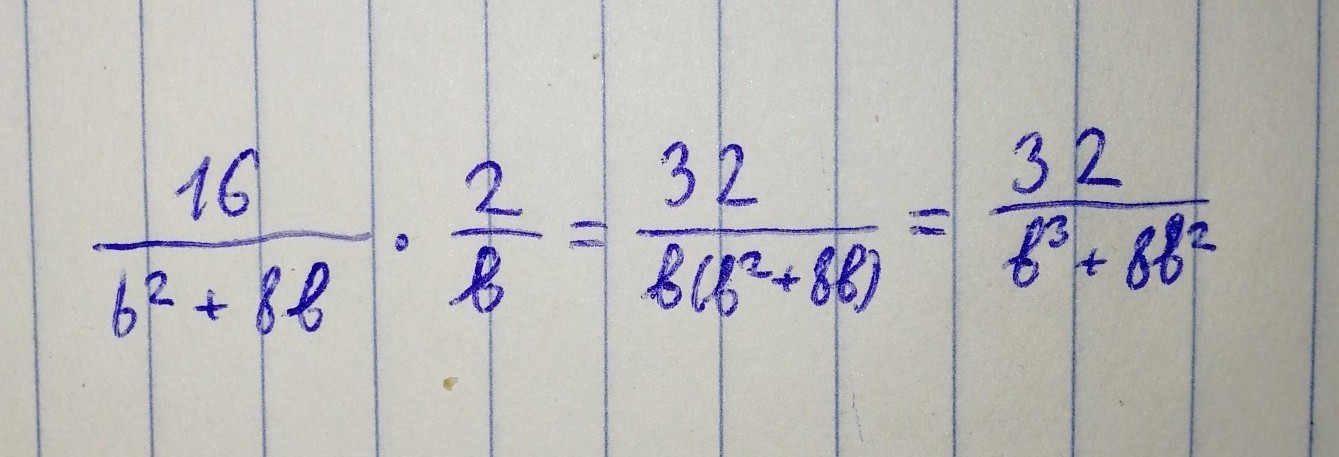 16/(b² + 8b) · 2/b = 32/(b(b² + 8b)) = 32/(b³ + 8b²)